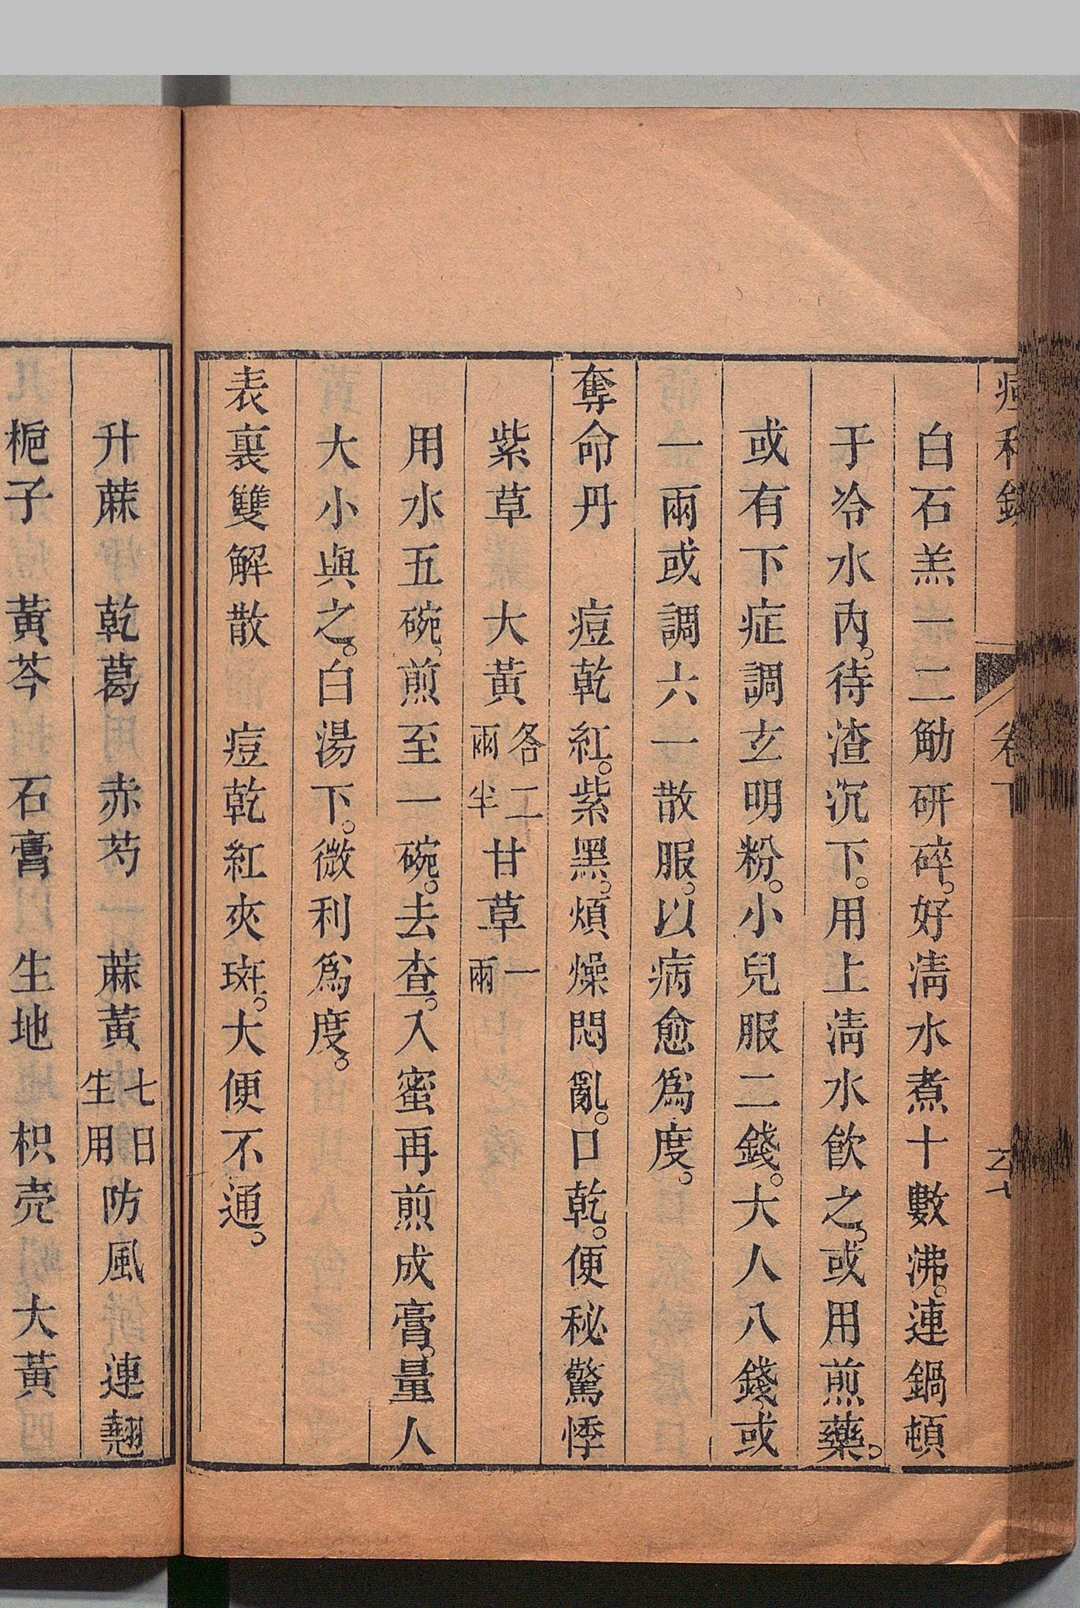 卷下
白石羔一二觔研碎。好清水煮十數沸。連鍋頓
于冷水內。待渣沉下。用上清水飲之。或用煎藥。
或有下症調玄明粉。小兒服二錢。大人八錢或
一兩或調六一散服。以病愈爲度。
奪命丹　痘乾紅。紫黑。煩燥悶亂。口乾。便秘驚悸
紫草　大黃各二兩半　甘草一兩
用水五碗。煎至一碗。去查。入蜜再煎成膏。量人
大小與之。白湯下。微利爲度。
表裏雙解散　痘乾紅夾斑。大便不通。
升蔴　乾葛　赤芍　蔴黃七日生用　防風　連翹
梔子　黃芩　石膏　生地　枳壳　大黃